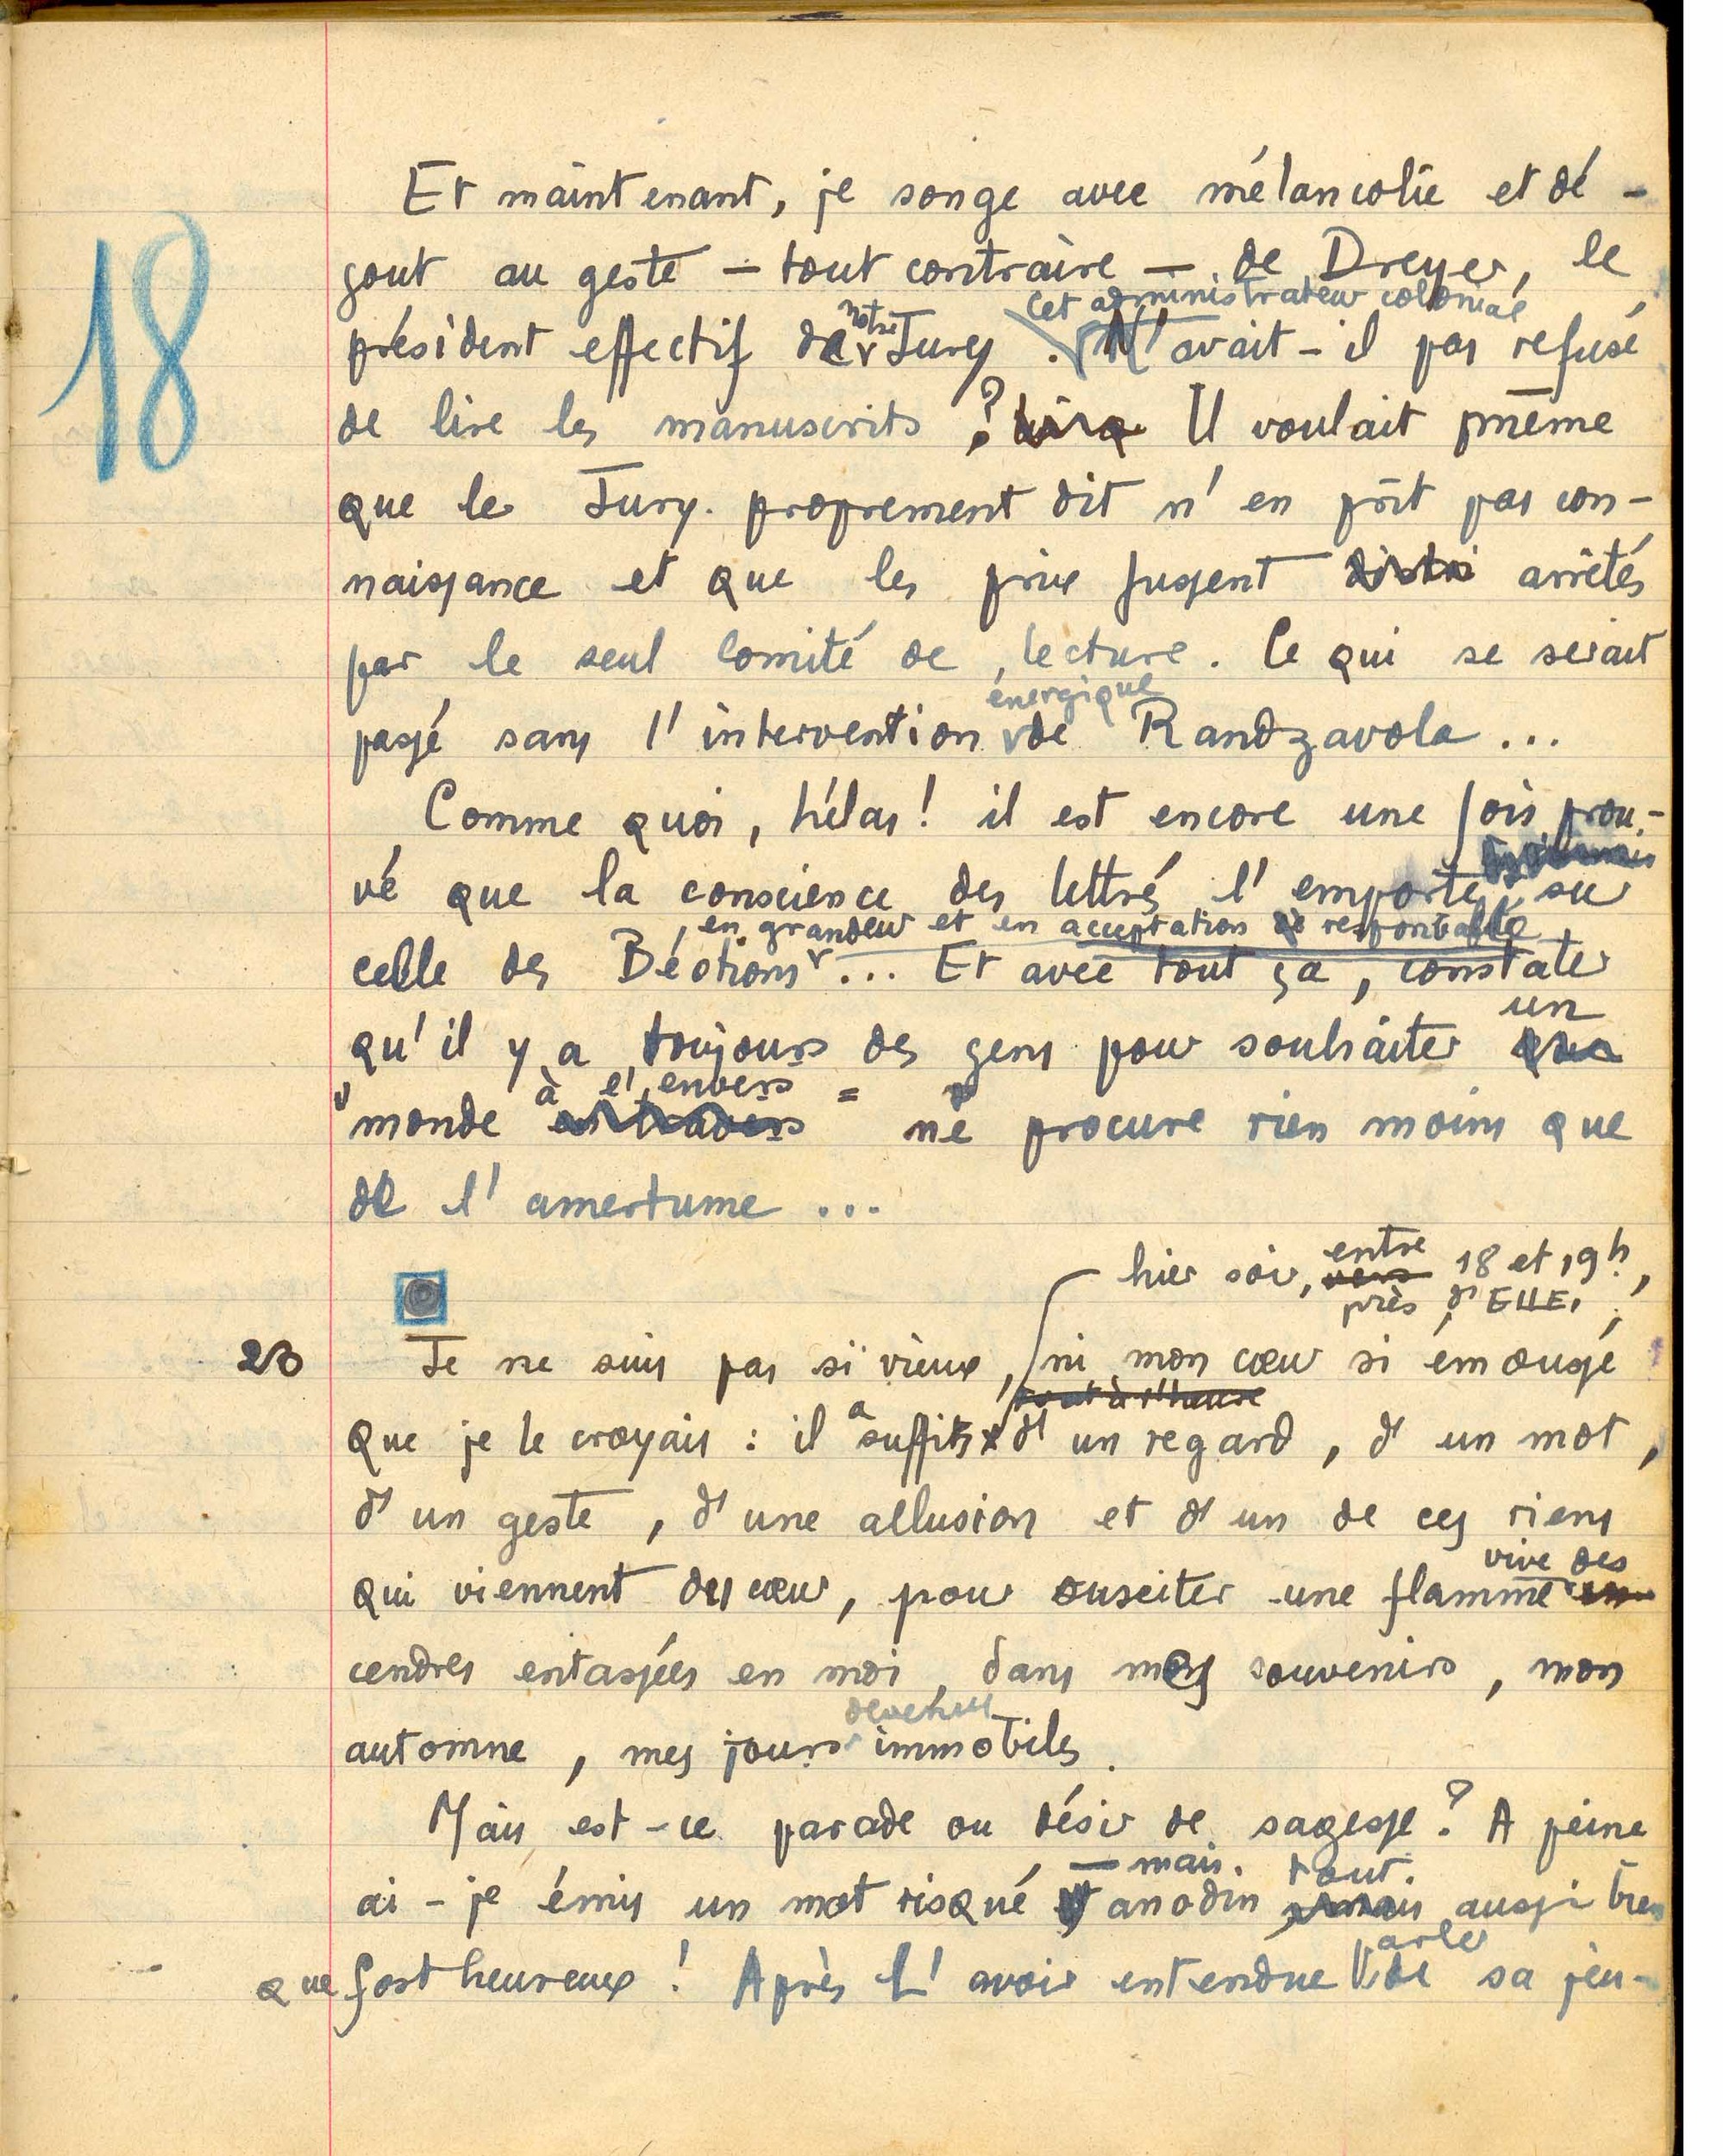 18
Et maintenant, je songe avec mélancolie et dé-
gout au geste – tout contraire – de Dreyer, le
président effectif de notre Jury. Cet administrateur colonial N'avait-il pas refusé
de lire les manuscrits ? Il voulait même
que le Jury proprement dit n'en prît pas con-
naissance et que les prix fussent arrêtés
par le seul Comité de lecture. Ce qui se serait
passé sans l'intervention énergique de Randzavola...
Comme quoi, hélas! il est encore une fois prou-
vé que la conscience des lettrés l'emporte sur
celle des Béotiens, en grandeur et en acceptation de responsabilité... Et avec tout ça, constater
qu'il y a toujours des gens pour souhaiter un
monde à l'envers = ne procure rien moins que
de l'amertume...
hier soir, entre 18 et 19h,
près d'ELLE,
23 Je ne suis pas si vieux, ni mon cœur si émoussé
que je le croyais : il a suffi d'un regard, d'un mot,
d'un geste, d'une allusion et d'un de ces riens
qui viennent du cœur, pour susciter une flamme vive des
cendres entassées en moi, dans mes souvenirs, mon
automne, mes jours devenus immobiles.
Mais est-ce parade ou désir de sagesse? A peine
ai-je émis un mot risqué – mais anodin tout aussi bien
que fort heureux! Après L'avoir entendue parler de sa jeu-